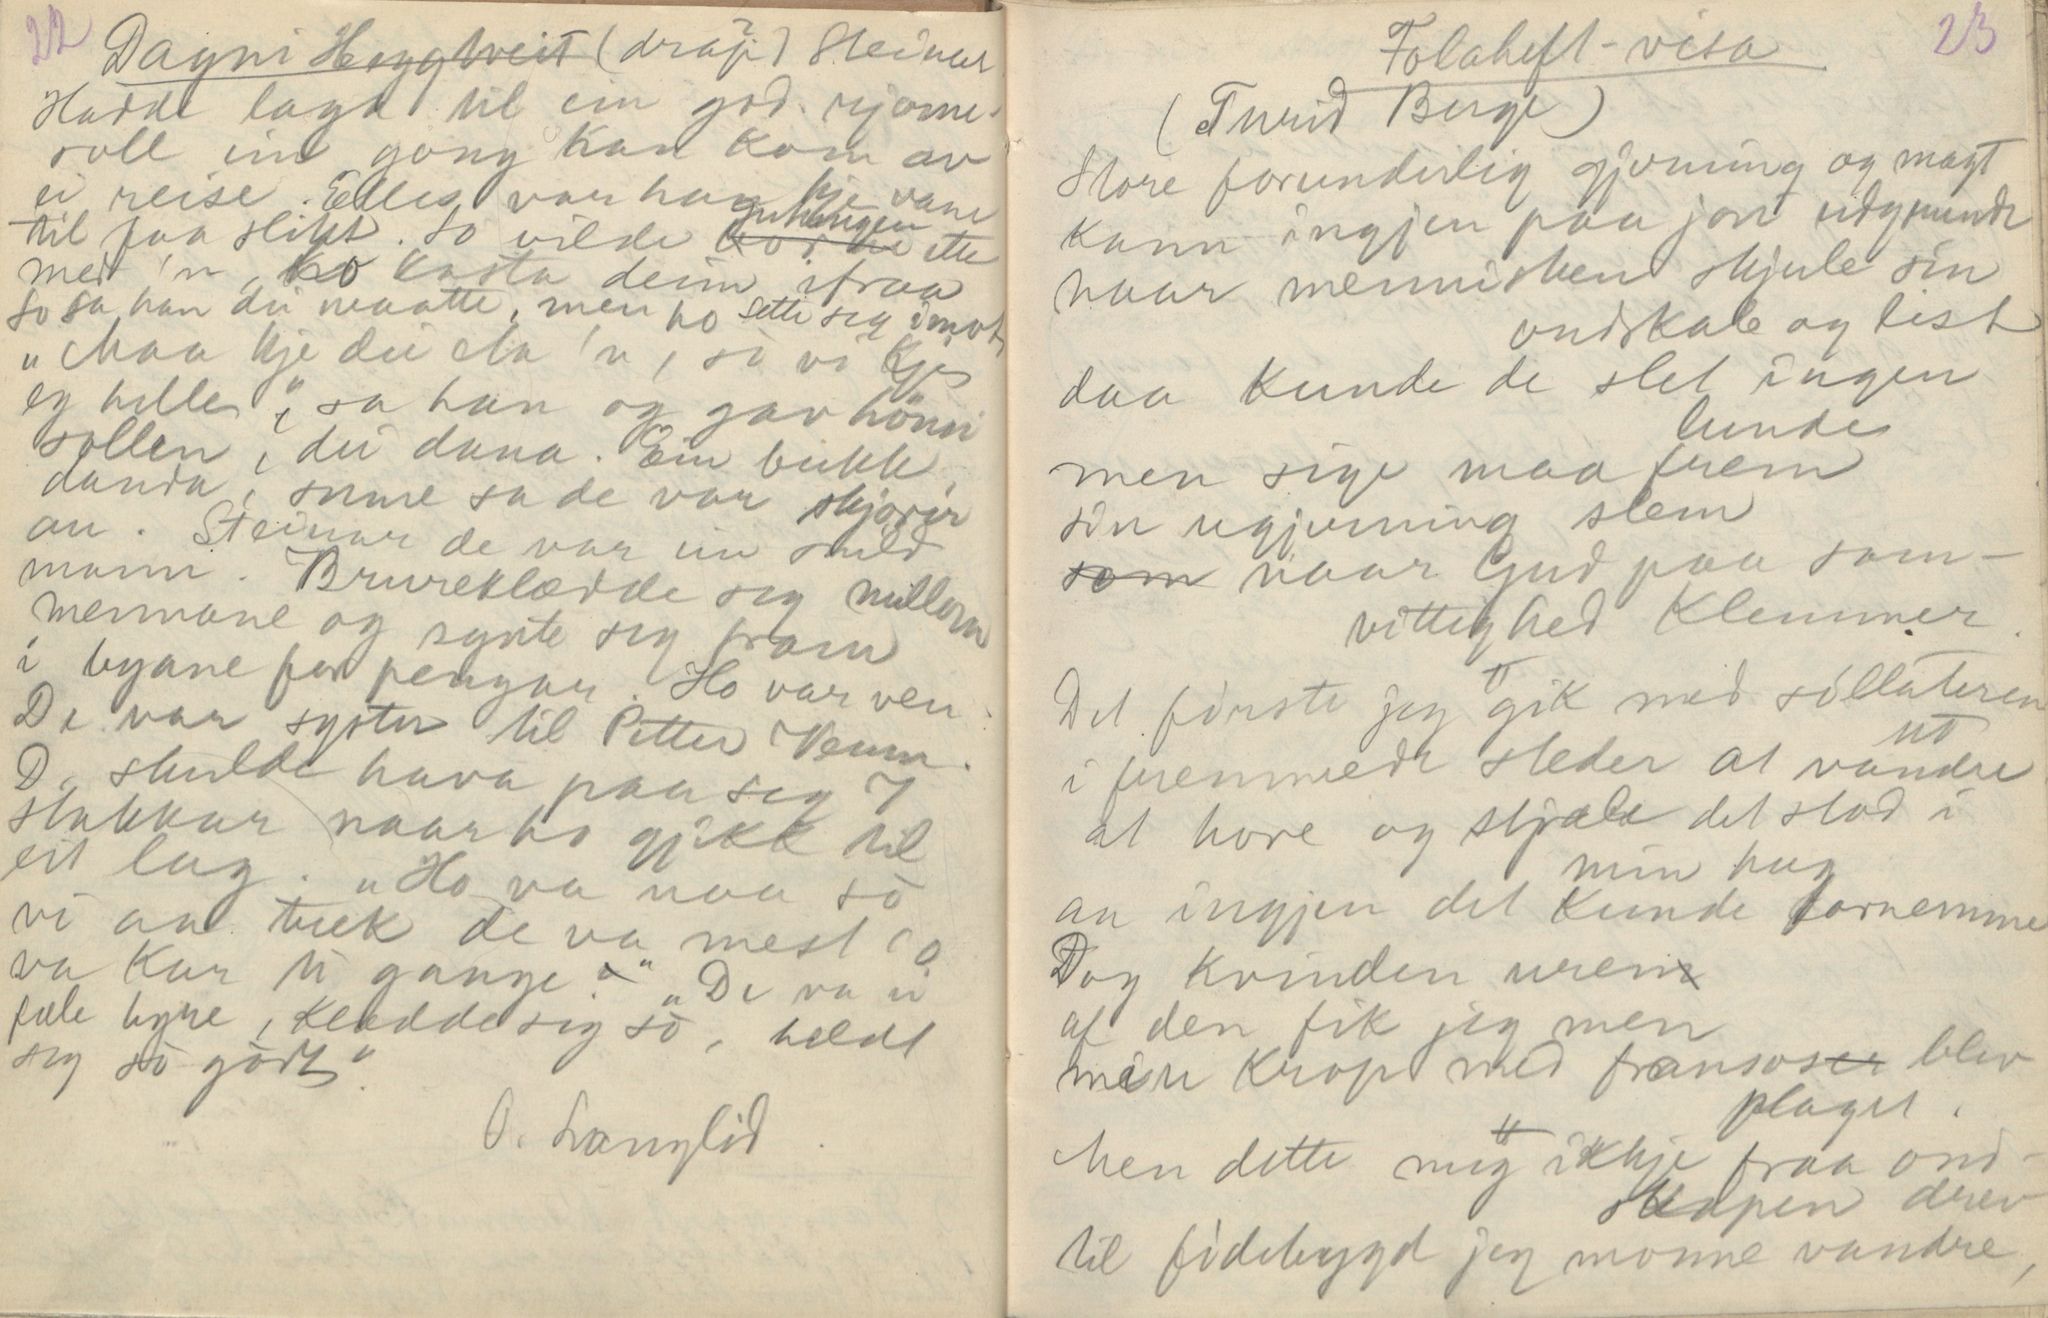 22
Dagni Heggtveit (dráp) Steinar
Hadde lagd til ein god rjome-
soll ein gong han kom av
ei reise. Elles var han kje vane
til faa slikt. So vilde guthengen
hos he ette
med 'n, ho kasta deim ifraa
so sa han dei maatte, men ho sette seg imot
"Maa kje dei sta 'n, so vi kje
eg helle", sa han og gav hönni
sollen, dei dana. Ein bukk,
danda, sume sa de var skjorir
an. Steinar de var ein snild
mann. Brureklædde seg millom
mennane og synte seg fram
i byane for pengar. Ho var ven.
De var syster til Petter Veum.
D. skulde hava paa seg 7
stakkar naar ho gjikk til
eit lag. "Ho va naa so
vi aa tuck de va mest 'o
va kar ti gange." "De va ei
fæle byre, kledde sig so, heldt
seg so gödt".
O. Longlid.
23
Folaheft-visa
(Turid Berge)
Store forunderlig gjerning og magt
kann ingjen paa jord udgrunde
naar mennisken skjule sin
ondskab og list
daa kunde de slet ingen
lunde
men sige maa frem
sin ugjerning slem
som naar Gud paa sam-
vittighed klemmer.
Det förste jeg gik med söllateren
ut
i fremmede steder at vandre
at hore og stjæla det stod i
min hug
an ingjen det kunde fornemme
Dog kvinden uren
af den fik jeg men
min krop med fransoser blev
plaget.
Men dette mig ikkje fraa ond-
skapen drev
til födebygd jeg monne vandre,